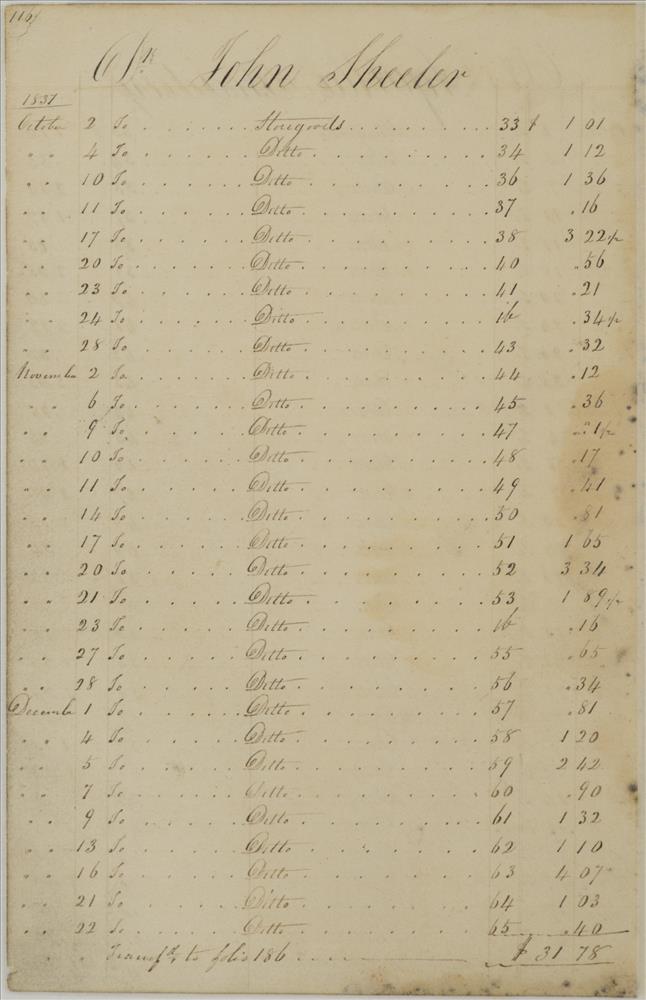 116
Dr. John Sheeler
1837
October 2 To . . . . . . Storegoods . . . . . . . . . 33 $ 1 01
" " 4 To . . . . . . Ditto . . . . . . . . . 34 1 12
" " 10 To . . . . . . Ditto . . . . . . . . . 36 1 36
" " 11 To . . . . . . Ditto . . . . . . . . . 37 .16
" " 17 To . . . . . . Ditto . . . . . . . . . 38 3 22 1/2
" " 20 To . . . . . . Ditto . . . . . . . . . 40 .56
" " 23 To . . . . . . Ditto . . . . . . . . . 41 .21
" " 24 To . . . . . . Ditto . . . . . . . . . ib .34 1/2
" " 28 To . . . . . . Ditto . . . . . . . . . 43 .32
November 2 To . . . . . . Ditto . . . . . . . . . 44 .12
" " 6 To . . . . . . Ditto . . . . . . . . . 45 .36
" " 9 To . . . . . . Ditto . . . . . . . . . 47 ." 1 1/2
" " 10 To . . . . . . Ditto . . . . . . . . . 48 .17
" " 11 To . . . . . . Ditto . . . . . . . . . 49 .41
" " 14 To . . . . . . Ditto . . . . . . . . . 50 .81
" " 17 To . . . . . . Ditto . . . . . . . . . 51 1 65
" " 20 To . . . . . . Ditto . . . . . . . . . 52 3 34
" " 21 To . . . . . . Ditto . . . . . . . . . 53 1 89 1/2
" " 23 To . . . . . . Ditto . . . . . . . . . ib .16
" " 27 To . . . . . . Ditto . . . . . . . . . 55 .65
" " 28 To . . . . . . Ditto . . . . . . . . . 56 .34
December 1 To . . . . . . Ditto . . . . . . . . . 57 .81
" " 4 To . . . . . . Ditto . . . . . . . . . 58 1 20
" " 5 To . . . . . . Ditto . . . . . . . . . 59 2 42
" " 7 To . . . . . . Ditto . . . . . . . . . 60 .90
" " 9 To . . . . . . Ditto . . . . . . . . . 61 1 32
" " 13 To . . . . . . Ditto . . . . . . . . . 62 1 10
" " 16 To . . . . . . Ditto . . . . . . . . . 63 4 07
" " 21 To . . . . . . Ditto . . . . . . . . . 64 1 03
" " 22 To . . . . . . Ditto . . . . . . . . . 65 .40
" " Transfd. to folio 186 . . . . $ 31 78